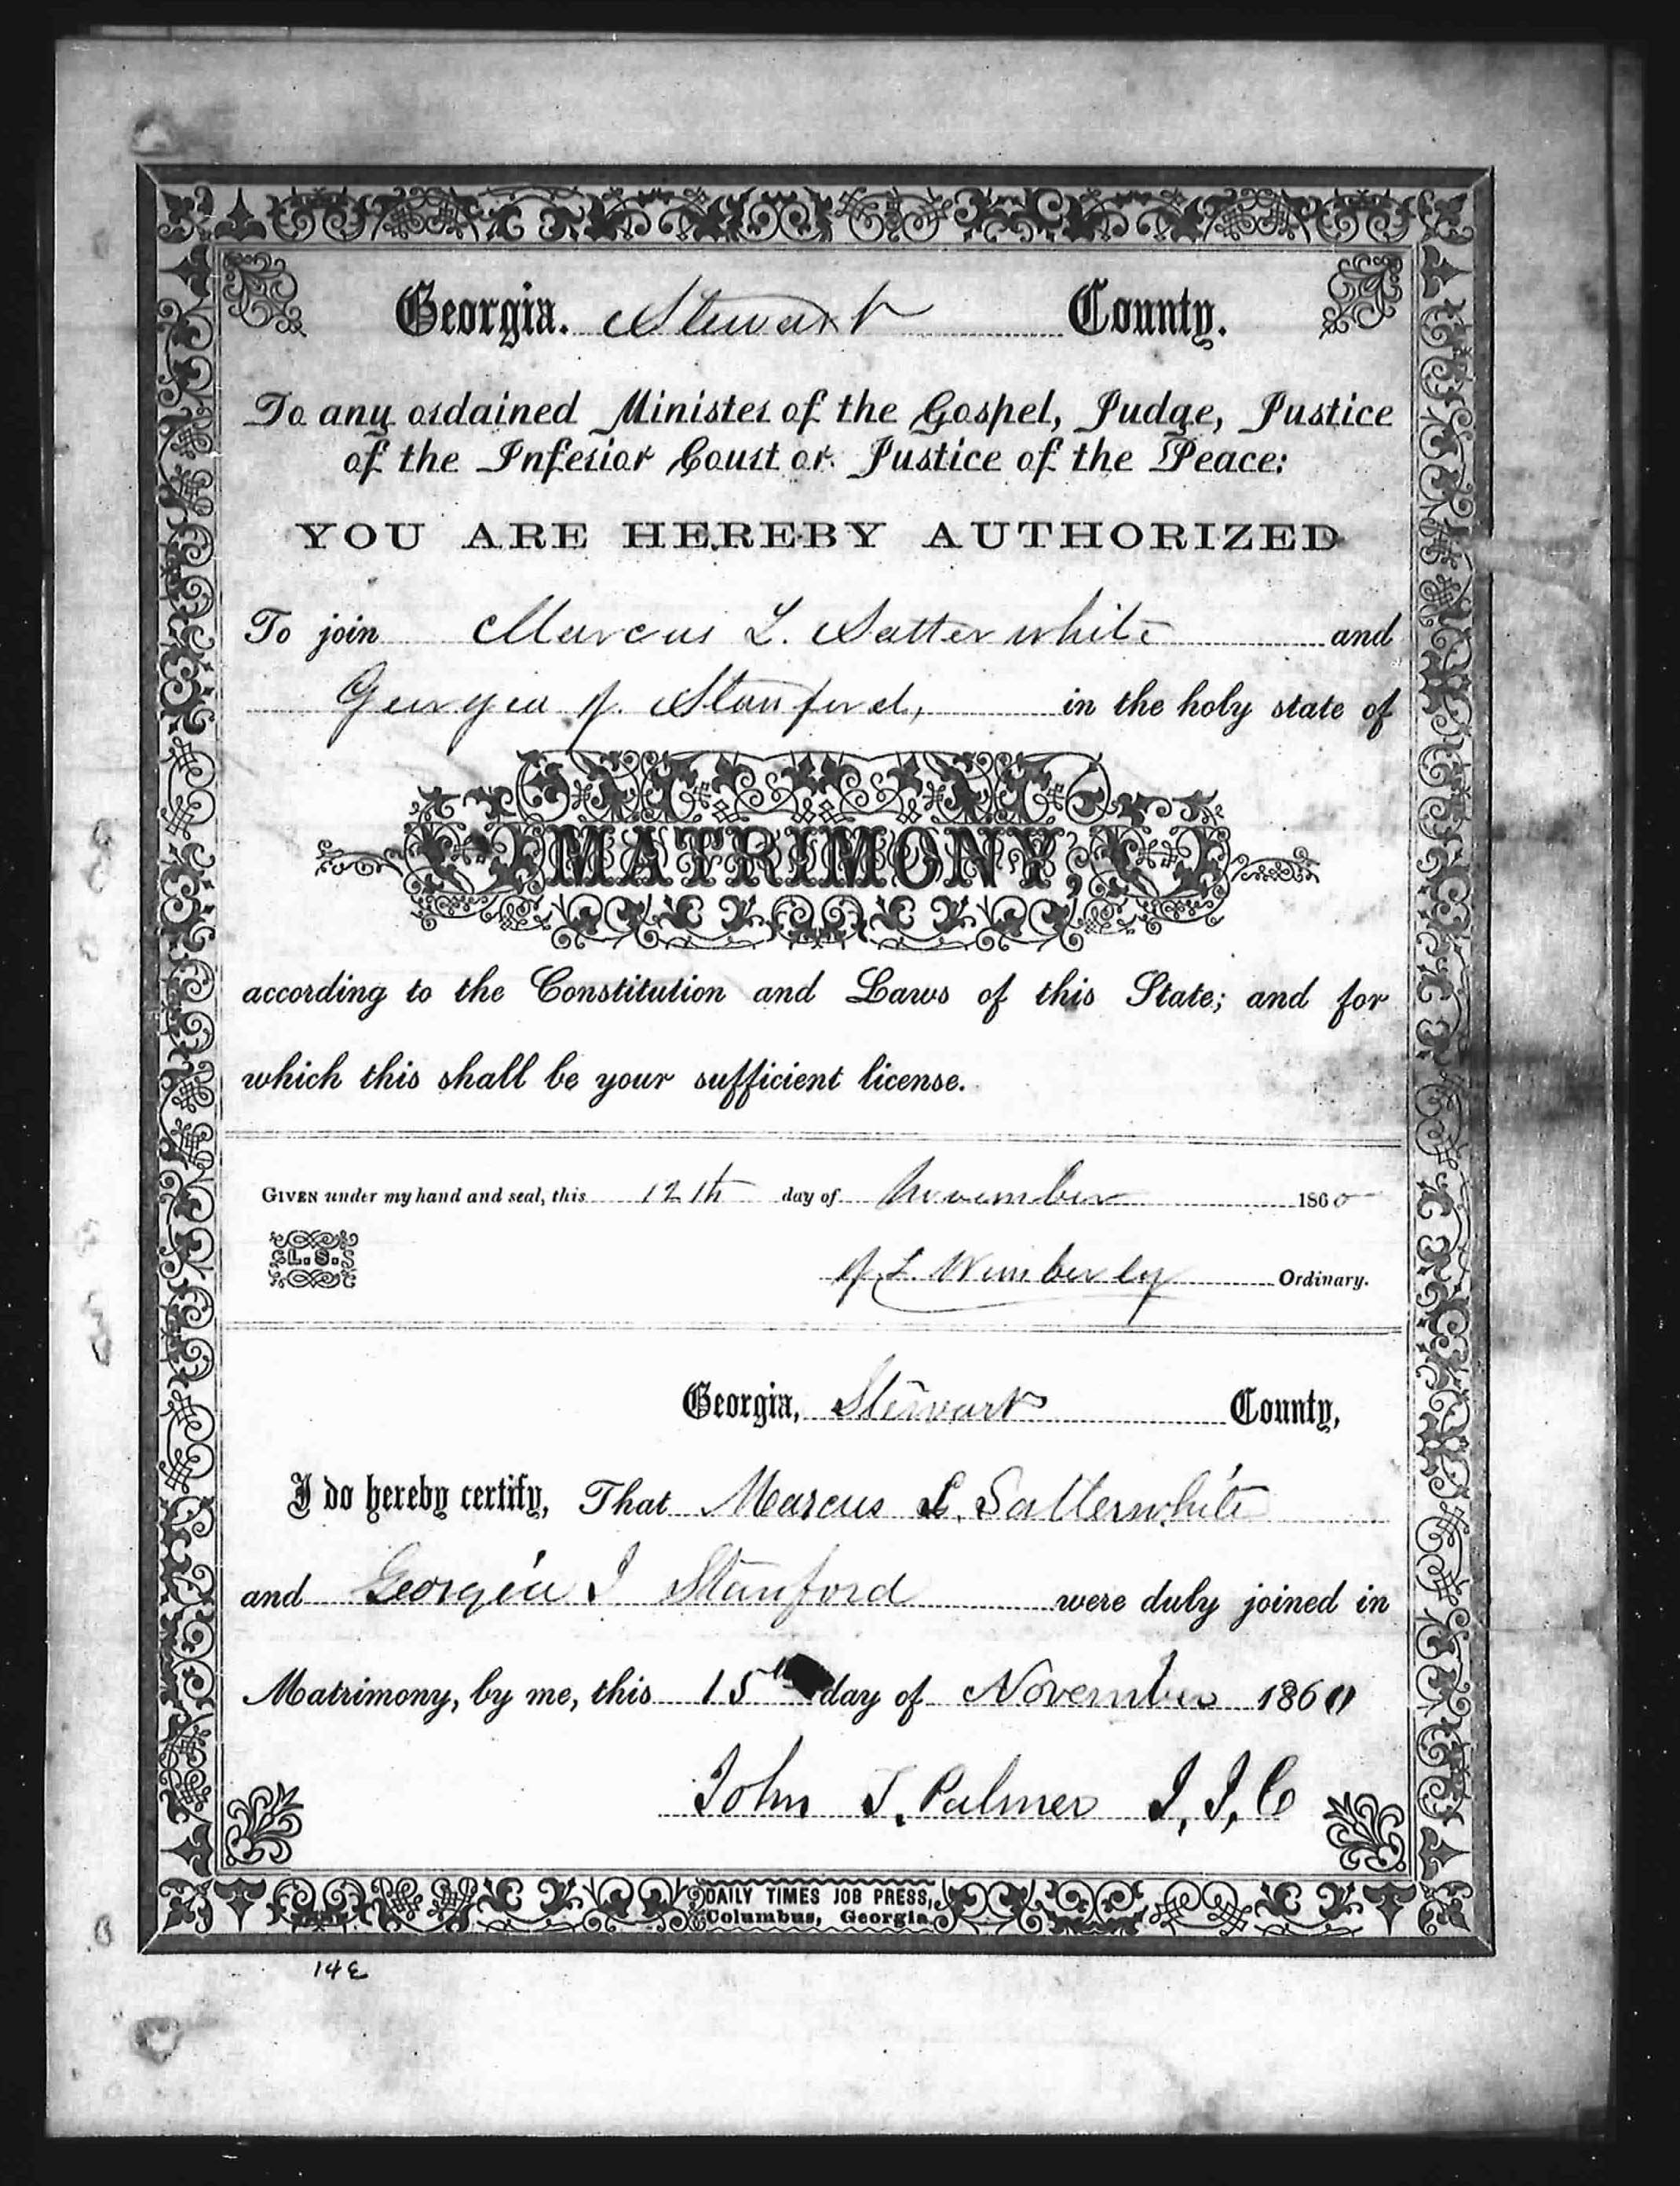 Georgia. Stewart County.
To any ordained Minister of the Gospel, Judge, Justice
of the Inferior Court or Justice of the Peace:
YOU ARE HEREBY AUTHORIZED
To join Marcus L. Satterwhite and
Georgia J. Stanford, in the holy state of
MATRIMONY,
according to the Constitution and Laws of this State; and for
which this shall be your sufficient license.
GIVEN under my hand and seal, this 12th day of November 1860
L. S.
J. L. Wimberly Ordinary.
Georgia, Stewart County,
I do hereby certify, That Marcus L. Satterwhite
and Georgia J Stanford were duly joined in
Matrimony, by me, this 15th day of November 1860
John T. Palmer J. J. C
DAILY TIMES JOB PRESS,
Columbus, Georgia.